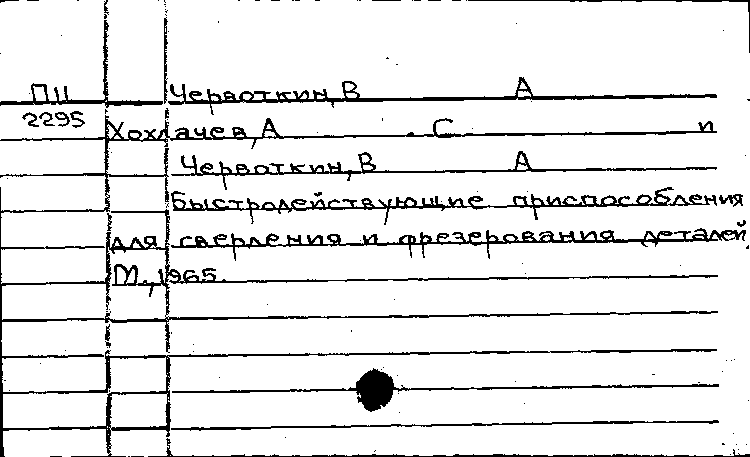 ПЦ Червоткин, В А
2295 Хохлачев, А. С и
Червоткин, В А
Быстродействующие приспособления
для сверления и фрезерования деталей,
М., 1965.